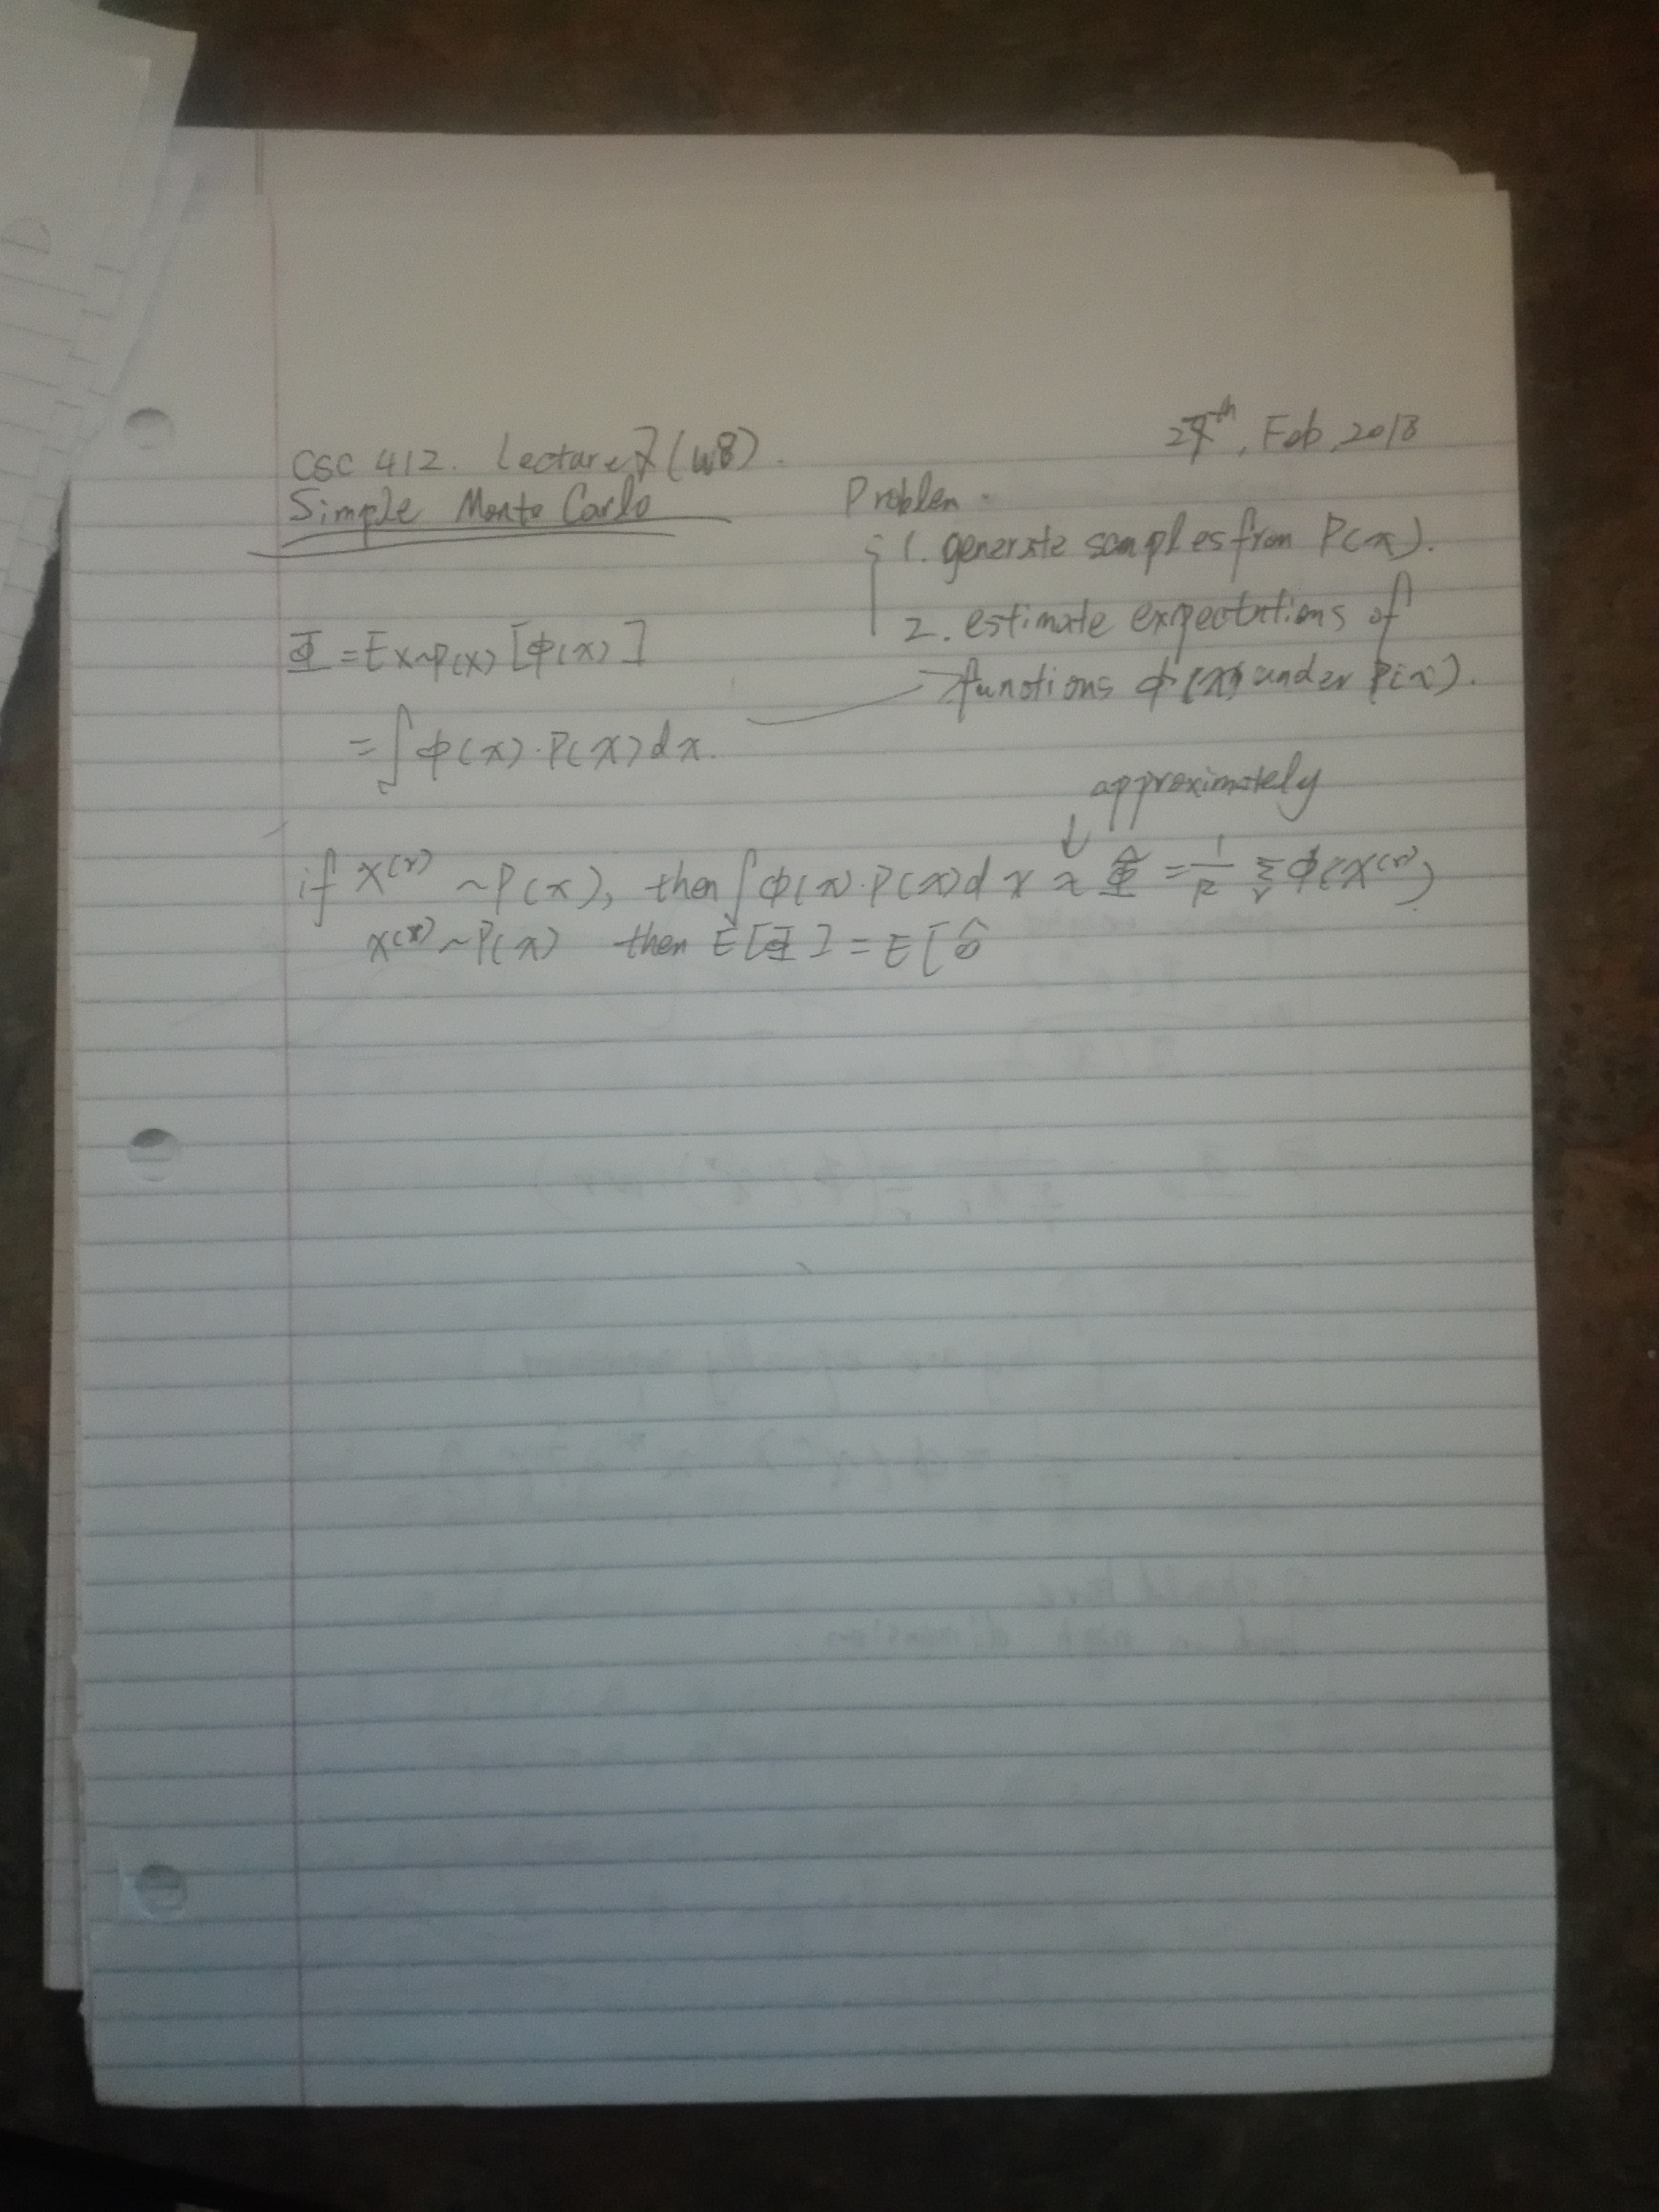 CSC 412. Lecture 7 (W8).
27th, Feb, 2018
Simple Monte Carlo
Problem.
1. generate samples from P(x).
2. estimate expectations of
functions ϕ(x) under P(x).
Φ = E x~P(x) [ϕ(x)]
= ∫ ϕ(x)·P(x) dx.
approximately
↓
if x^(r) ~ P(x), then ∫ ϕ(x)·P(x) dx ≈ Φ̂ = 1/R Σ_r ϕ(x^(r))
x^(r) ~ P(x) then E[Φ] = E[